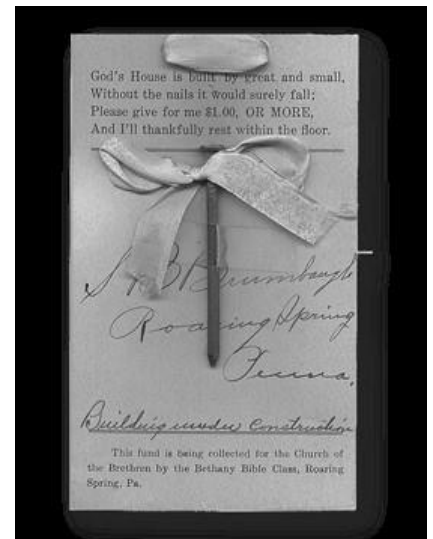 God's House is built by great and small,
Without the nails it would surely fall;
Please give for me $1.00, OR MORE,
And I'll thankfully rest within the floor.
Brumbaugh
Roaring Spring
Penna.
Building under Construction
This fund is being collected for the Church of
the Brethren by the Bethany Bible Class, Roaring
Spring, Pa.